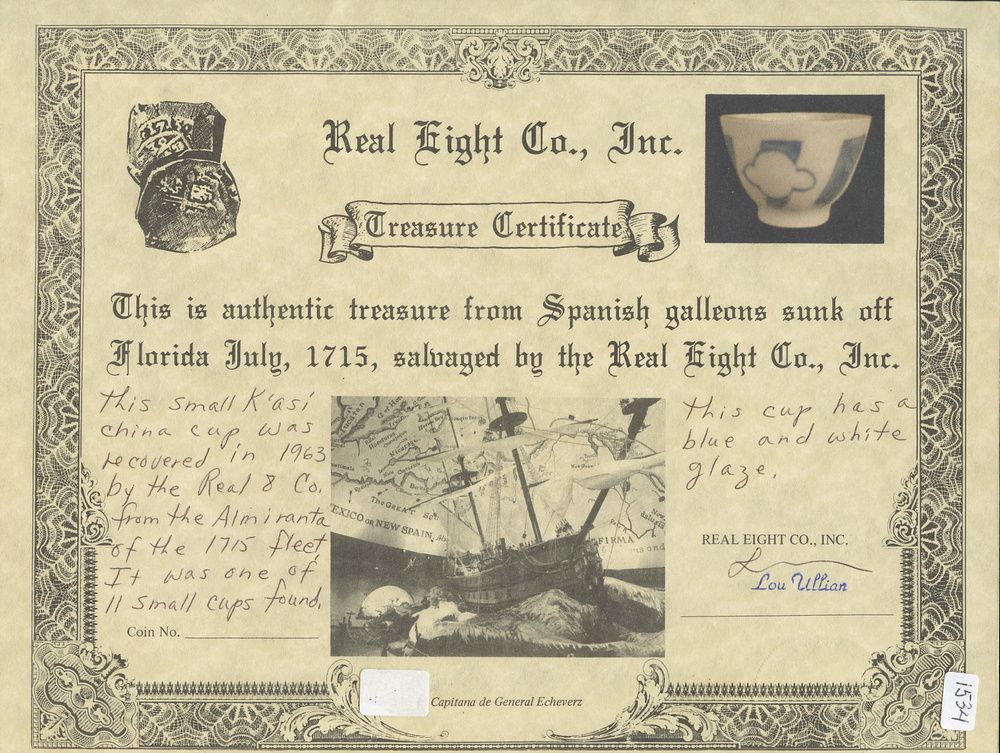 Real Eight Co., Inc.
Treasure Certificate
This is authentic treasure from Spanish galleons sunk off
Florida July, 1715, salvaged by the Real Eight Co., Inc.
this small K'asi
china cup was
recovered in 1963
by the Real 8 Co.
from the Almiranta
of the 1715 fleet
It was one of
11 small cups found.
Coin No.
EXICO OR NEW SPAIN
FIRMA
Capitana de General Echeverz
this cup has a
blue and white
glaze.
REAL EIGHT CO., INC.
Lou Ullian
1534